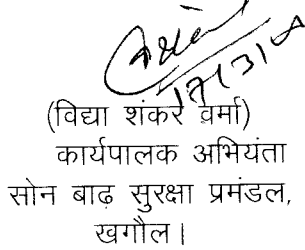 17/3/18
(विद्या शंकर वर्मा)
कार्यपालक अभियंता
सोन बाढ़ सुरक्षा प्रमंडल,
खगौल।